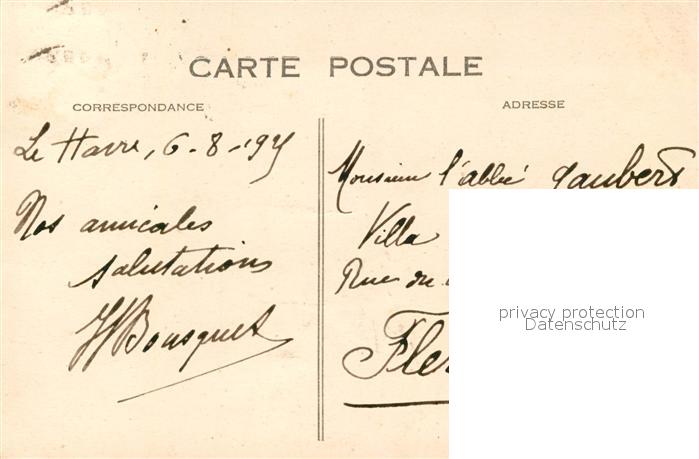 CARTE POSTALE
CORRESPONDANCE
ADRESSE
Le Havre, 6-8-19
Nos amicales
salutations
Bousquet
Monsieur l'abbé Gaubert
Villa
Rue du
privacy protection
Datenschutz